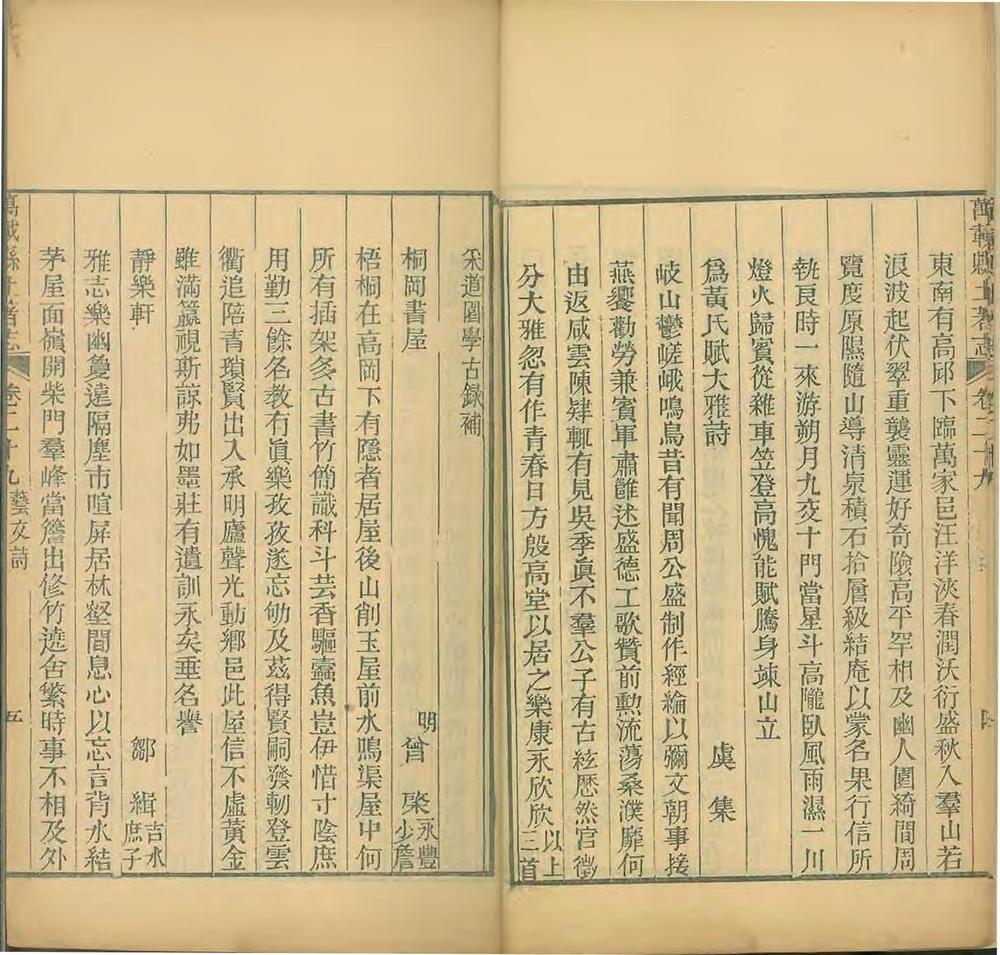 萬載縣土著志 卷二十九
東南有高邱下臨萬家邑汪洋浹春潤沃衍盛秋入羣山若
浪波起伏翠重襲靈運好奇險高平罕相及幽人園綺間周
覽度原隰隨山導清泉積石拾層級結庵以蒙名果行信所
執良時一來游朔月九交十門當星斗高隴臥風雨濕一川
燈火歸賓從雜車笠登高愧能賦騰身竦山立
爲黃氏賦大雅詩 虞集
岐山鬱嵯峨鳴鳥昔有聞周公盛制作經綸以彌文朝事接
燕饗勸勞兼賓軍肅雝述盛德工歌贊前勳流蕩桑濮靡何
由返咸雲陳肄輒有見吳季眞不羣公子有古絃歷然宮徵
分大雅忽有作青春日方殷高堂以居之樂康永欣欣 以上三首
采道園學古錄補
桐岡書屋 明曾棨 永豐少詹
梧桐在高岡下有隱者居屋後山削玉屋前水鳴渠屋中何
所有插架多古書竹簡識科斗芸香驅蠹魚豈伊惜寸陰庶
用勤三餘名教有眞樂孜孜遂忘劬及茲得賢嗣發軔登雲
衢追陪青瑣賢出入承明廬聲光動鄉邑此屋信不虛黃金
雖滿籯視斯諒弗如墨莊有遺訓永矣垂名譽
靜樂軒 鄒緝 吉水庶子
雅志樂幽夐遠隔塵市喧屏居林壑間息心以忘言背水結
茅屋面嶺開柴門羣峰當簷出修竹遶舍繁時事不相及外
萬載縣土著志 卷二十九 藝文詩 五